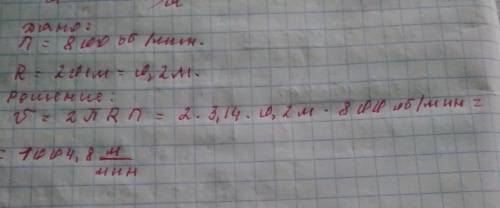 Дано:
n = 800 об/мин.
R = 20см = 0,2м.
Решение:
v = 2πRn = 2·3,14·0,2м·800об/мин =
= 1004,8 м/мин